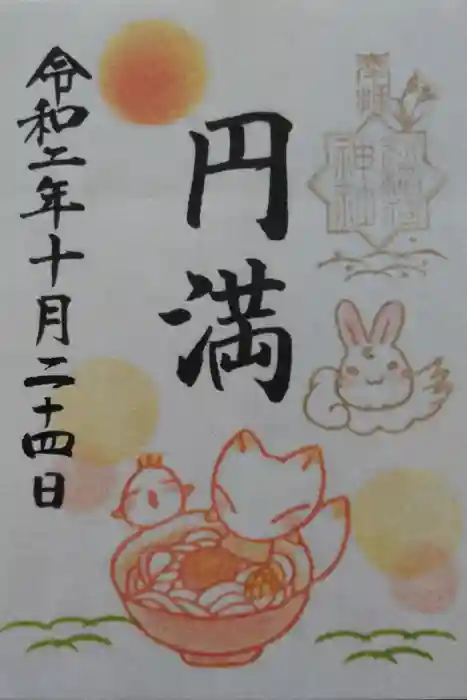 奉拝
神社
円満
令和二年十月二十四日